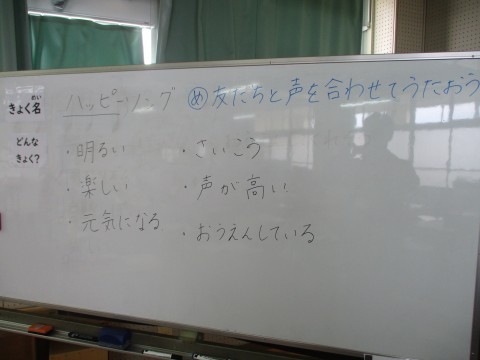 きょく名 ハッピーソング め 友だちと声を合わせてうたおう
めい
どんな
きょく?
・明るい ・さいこう
・楽しい ・声が高い
・元気になる ・おうえんしている